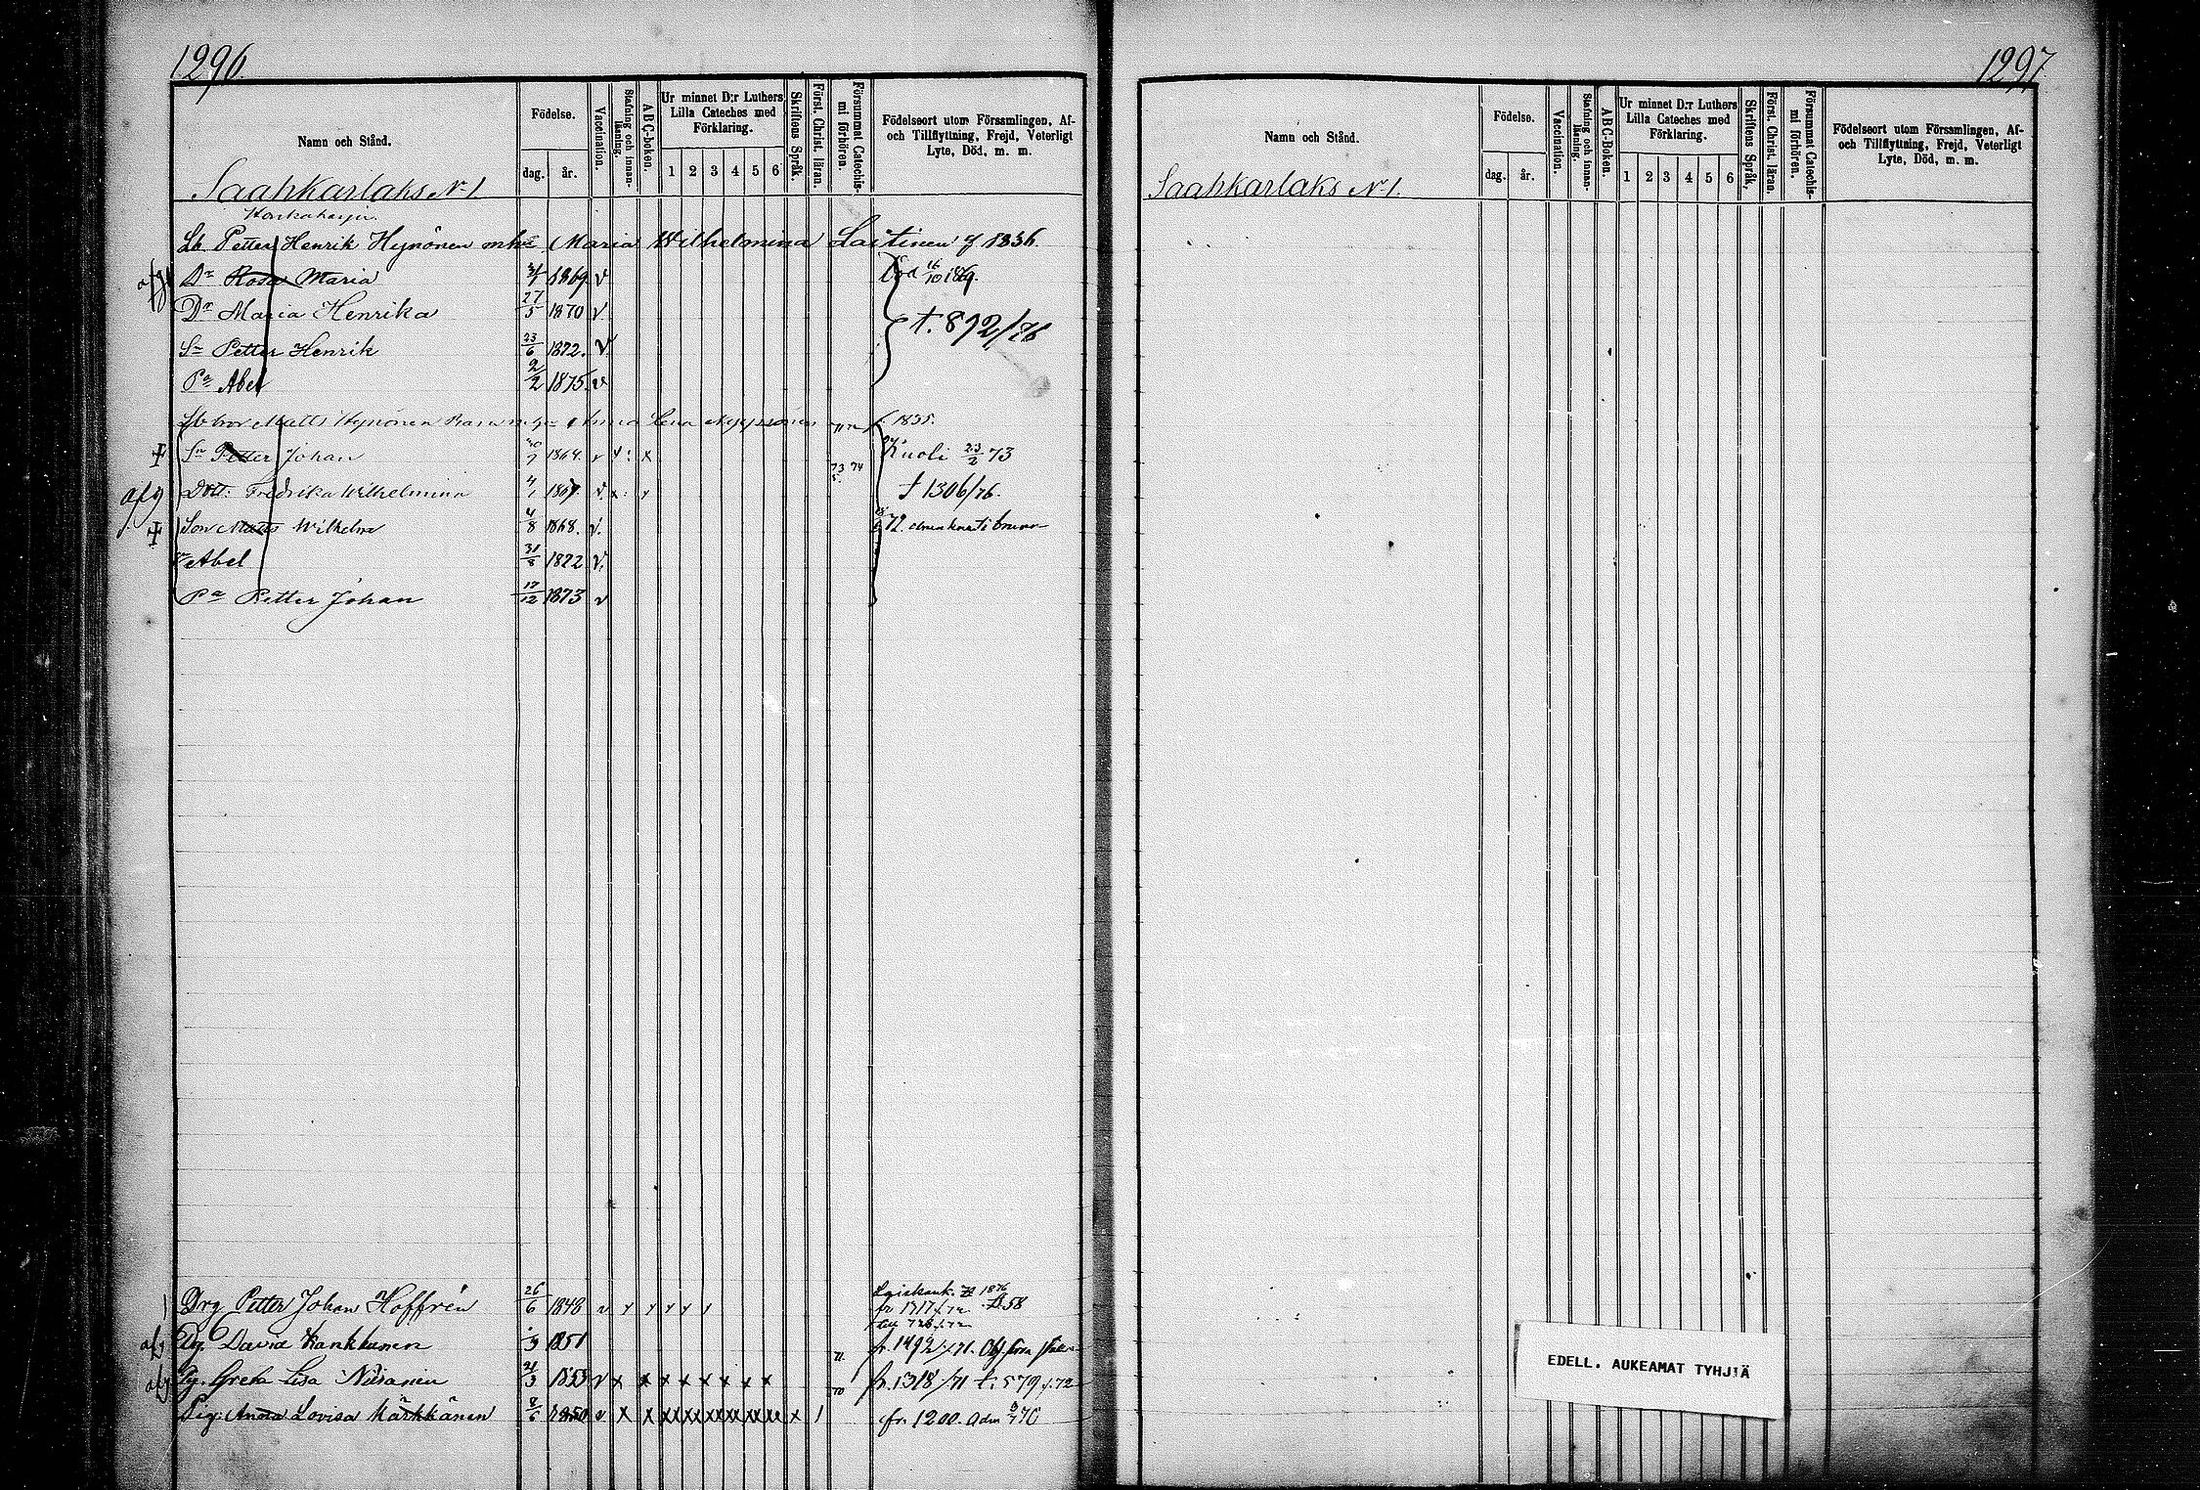 1296.
Namn och Stånd.
Födelse.
dag. år.
Vaccination.
Stafning och innanläsning.
ABC-boken.
Ur minnet D:r Luthers Lilla Cateches med Förklaring.
1 2 3 4 5 6
Skriftens Språk.
Först. Christ. läran.
Försummat Catechismi förhören.
Födelseort utom Församlingen, Af- och Tillflyttning, Frejd, Veterligt Lyte, Död, m. m.
Saahkarlaks N 1.
Lb. Petter Henrik Hynönen mhu Maria Wilhelmina Laitinen f 1836.
Dr Rosa Maria 1869. v Död 16/10 1869.
Dr Maria Henrika 27/5 1870 v t. 892/76
Sn Petter Henrik 23/6 1872. v
Pa Abel 2/2 1875. v
Matts Hynönen Lena 1835.
Sn Petter Johan 1864. v x Kuoli 23/2 73
73 74
afg Dott: Fredrika Wilhelmina 4/1 1867. v. x. t 1306/76.
Son Matts Wilhelm 4/8 1868. v. 72.
Abel 31/8 1872 v.
Pa Petter Johan 17/12 1873 v
Drg Petter Johan Hoffrén 26/6 1848 v fr 1717 f.72 58
afg Dg. David Kankkunen 1851 71. fr. 1492/71.
afg Pg. Greta Lisa Niiranen 21/3 1853 v x x x x x x x x 70 fr. 1318/71 t. 579 f.72
Pig. Anna Lovisa Markkanen 8/6 1850 v x x xx xx xx xx xx xx x 1 fr. 1200. adm 70
1297.
Namn och Stånd.
Födelse.
dag. år.
Vaccination.
Stafning och innanläsning.
ABC-Boken.
Ur minnet D:r Luthers Lilla Cateches med Förklaring.
1 2 3 4 5 6
Skriftens Språk,
Först. Christ. läran.
Försummat Catechismi förhören.
Födelseort utom Församlingen, Af- och Tillflyttning, Frejd, Veterligt Lyte, Död, m. m.
Saahkarlaks N 1.
EDELL. AUKEAMAT TYHJIÄ